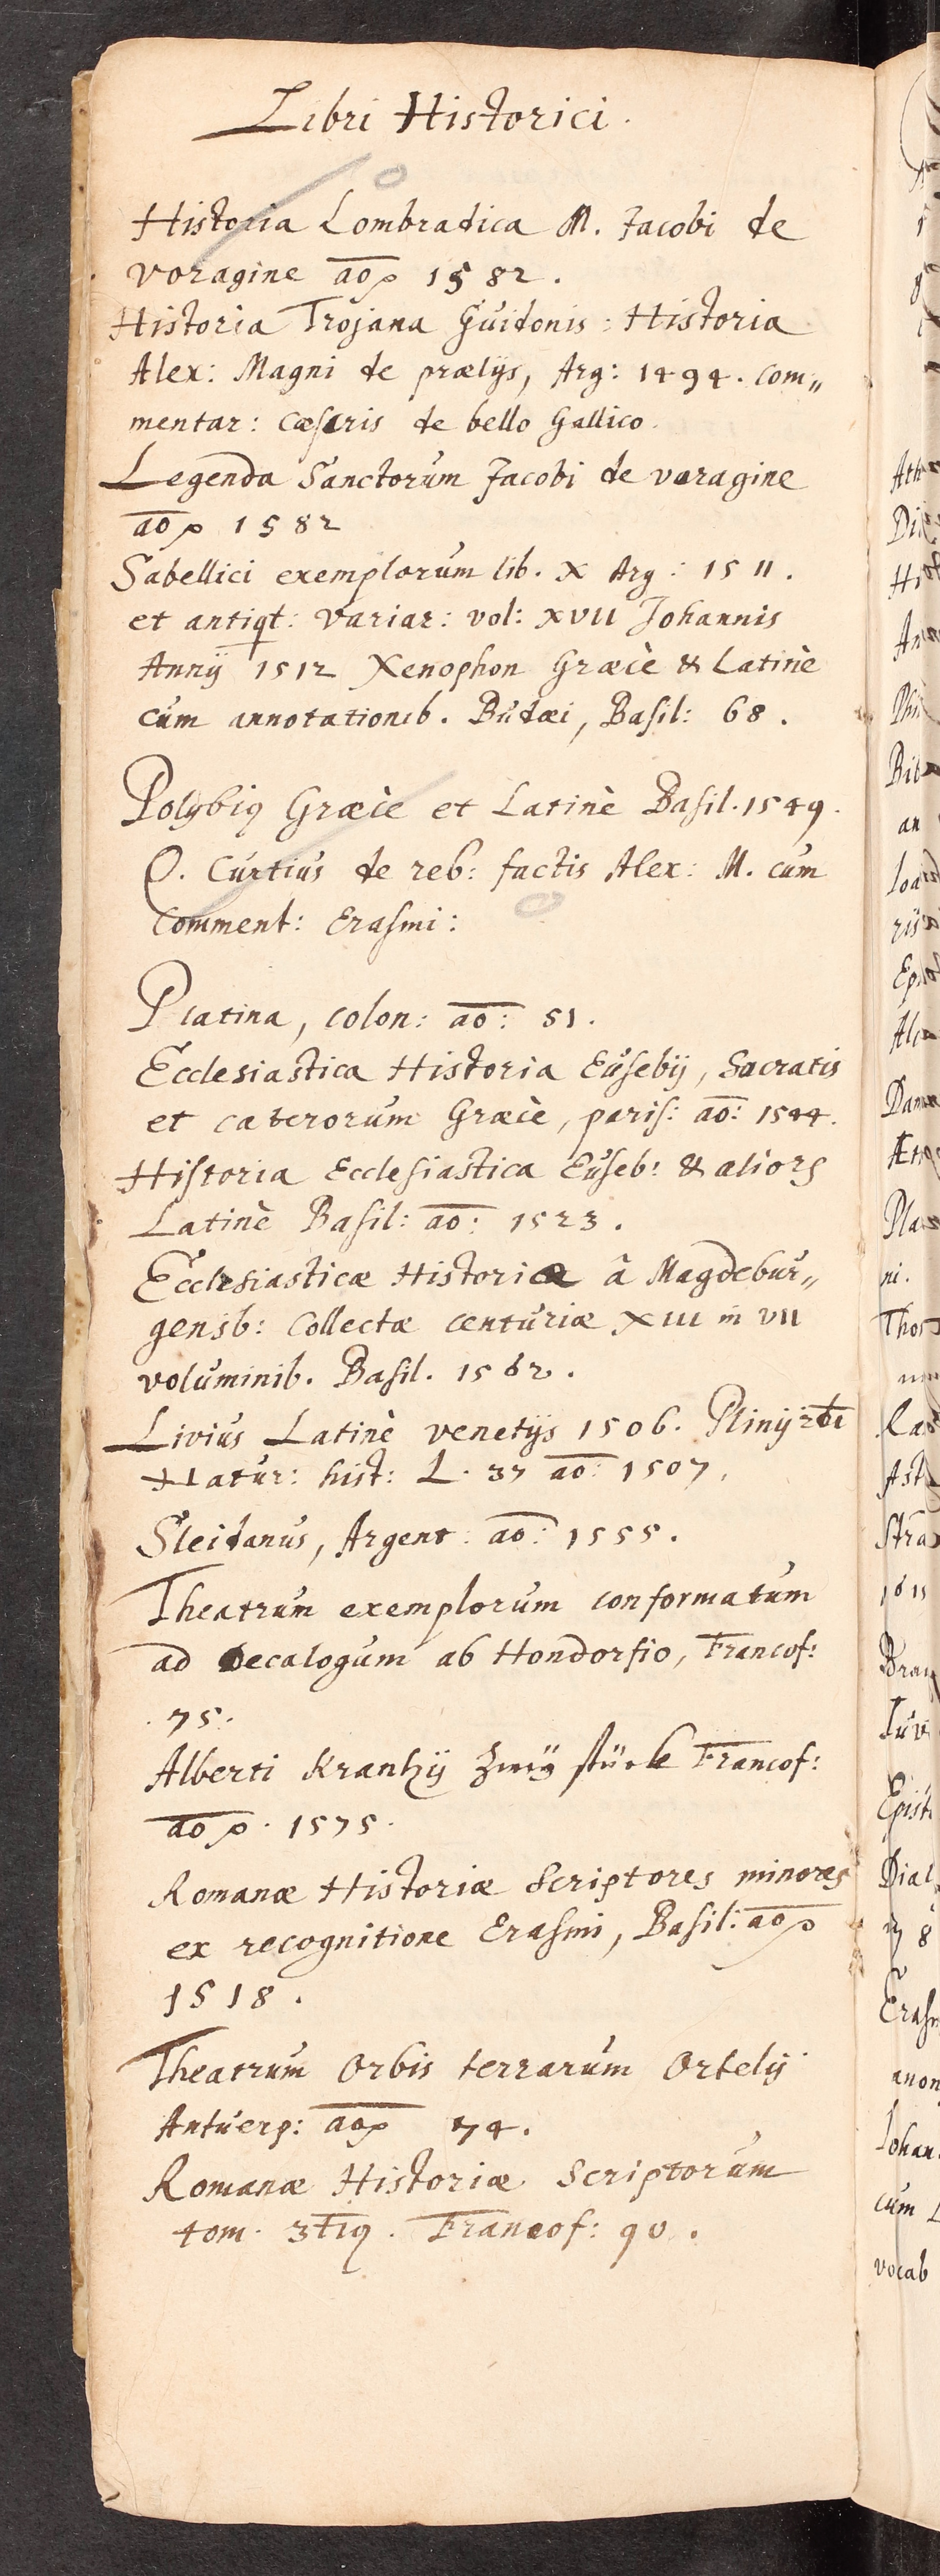 Libri Historici.
Historia Lombradica M. Jacobi de
voragine ao 1582.
Historia Trojana Guidonis: Historia
Alex: Magni de prælijs, Arg: 1494. Com„
mentar: Cæsaris de bello Gallico.
Legenda Sanctorum Jacobi de voragine
ao 1582
Sabellici exemplorum lib. X Arg: 1511.
et antiqt: variar: vol: XVII Johannis
Annij 1512 Xenophon Græcè & Latinè
cum annotationib. Budæi, Basil: 68.
Polybiq Græcè et Latinè Basil. 1549.
Q. Curtius de reb: factis Alex: M. cum
Comment: Erasmi:
Platina, Colon: ao: 51.
Ecclesiastica Historia Eusebij, Socratis
et cæterorum Græcè, paris: ao: 1544.
Historia Ecclesiastica Euseb: & alior
Latinè Basil: ao: 1523.
Ecclesiasticæ Historiæ â Magdebur„
gensb: Collectæ centuriæ XIII in VII
voluminib. Basil. 1562.
Livius Latinè venetijs 1506. Plinij
Natur: hist: L. 37 ao: 1507,
Sleidanus, Argent: ao: 1555.
Theatrum exemplorum conformatum
ad Decalogum ab Hondorfio, Francof:
75.
Alberti Krantzij Zwey stück Francof:
ao. 1575.
Romanæ Historiæ Scriptores minores
ex recognitione Erasmi, Basil: ao
1518.
Theatrum Orbis terrarum Ortelij
Antuerp: ao 74.
Romanæ Historiæ Scriptorum
tom. 3tiq. Francof: 90.